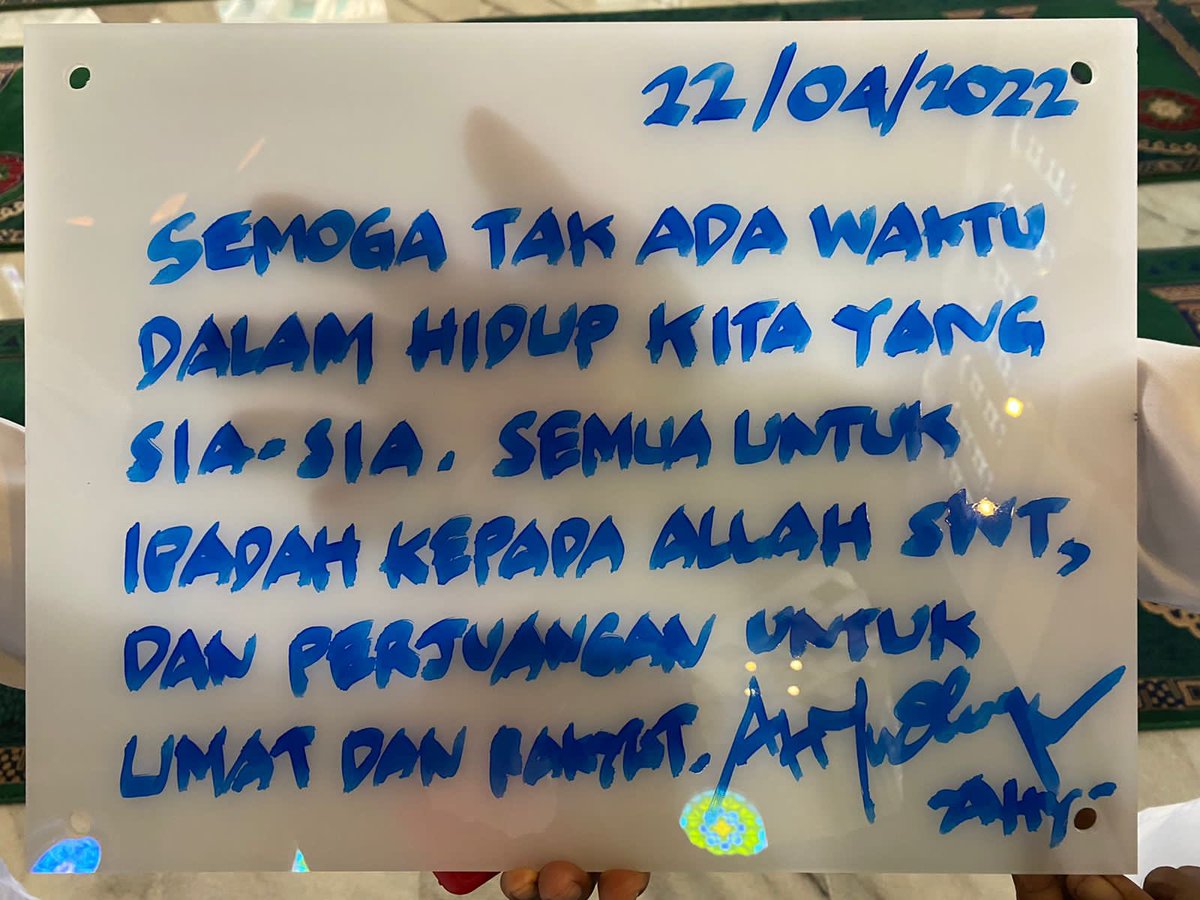 22/04/2022
SEMOGA TAK ADA WAKTU
DALAM HIDUP KITA YANG
SIA-SIA. SEMUA UNTUK
IBADAH KEPADA ALLAH SWT,
DAN PERJUANGAN UNTUK
UMAT DAN RAKYAT.
AHY